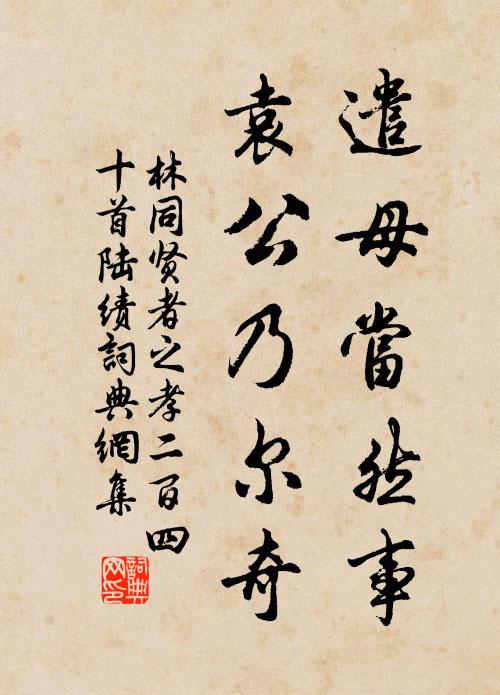 遣母當然事
袁公乃尔奇
林同贤者之孝二百四
十首陆绩詞典網集
詞典
网印